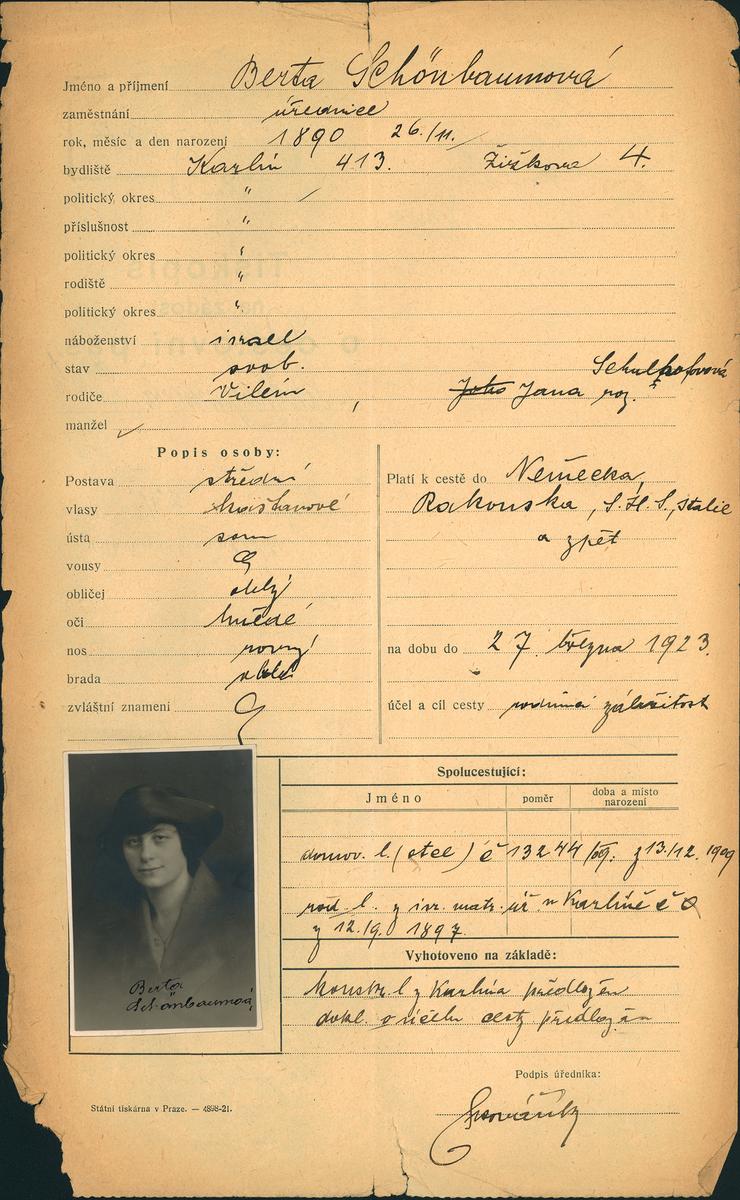 Jméno a příjmení Berta Schönbaumová
zaměstnání úřednice
rok, měsíc a den narození 1890 26./11.
bydliště Karlín 413. Žižkova 4.
politický okres "
příslušnost "
politický okres "
rodiště "
politický okres "
náboženství israel
stav svob. Schulhofová
rodiče Vilém , Jana roz.
manžel
Popis osoby:
Postava střední
vlasy kaštanové
ústa soum
vousy
obličej oblý
oči hnědé
nos rovný
brada oblá
zvláštní znamení
Platí k cestě do Německa,
Rakouska, S.H.S., Italie
a zpět
na dobu do 27. března 1923.
účel a cíl cesty rodinná záležitost
Spolucestující:
Jméno poměr doba a místo
narození
domov. l. (otec) č 13244/09. z 13./12. 1909
rod. l. z isr. matr. úř. v Karlíně č
z 12./9. 1897.
Vyhotoveno na základě:
konskr. l z Karlína předložen
dokl. o účelu cesty předložen
Berta
Schönbaumová
Podpis úředníka:
Státní tiskárna v Praze. — 4898-21.